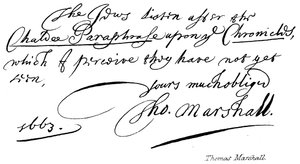 The Jews listen after the
Chaldee Paraphrase upon yᵉ Chronicles,
which I perceive they have not yet
seen,
Yours much obliged
Tho. Marshall.
1663.
Thomas Marshall.